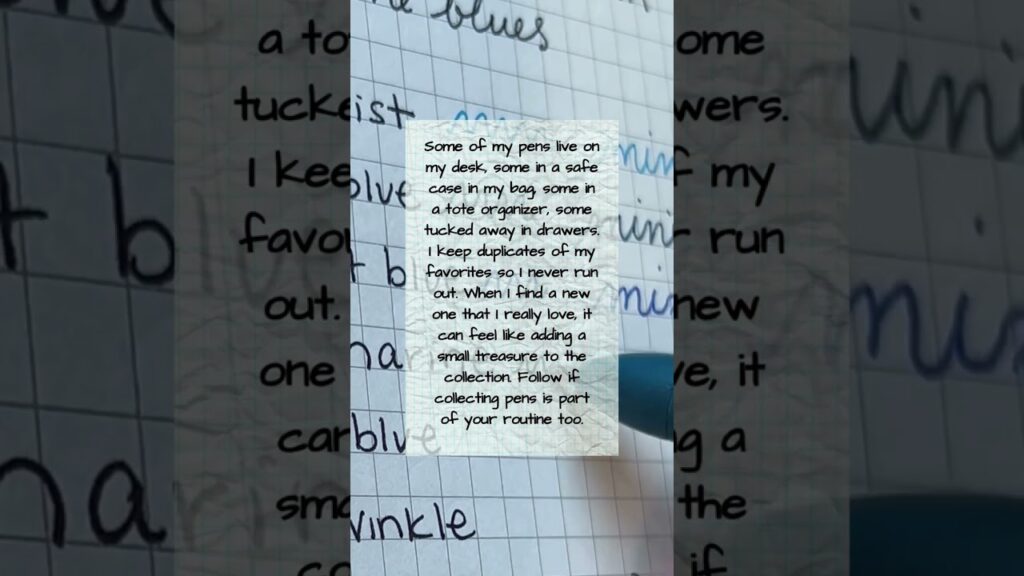 blues
Some of my pens live on
my desk, some in a safe
case in my bag, some in
a tote organizer, some
tucked away in drawers.
I keep duplicates of my
favorites so I never run
out. When I find a new
one that I really love, it
can feel like adding a
small treasure to the
collection. Follow if
collecting pens is part
of your routine too.
blue